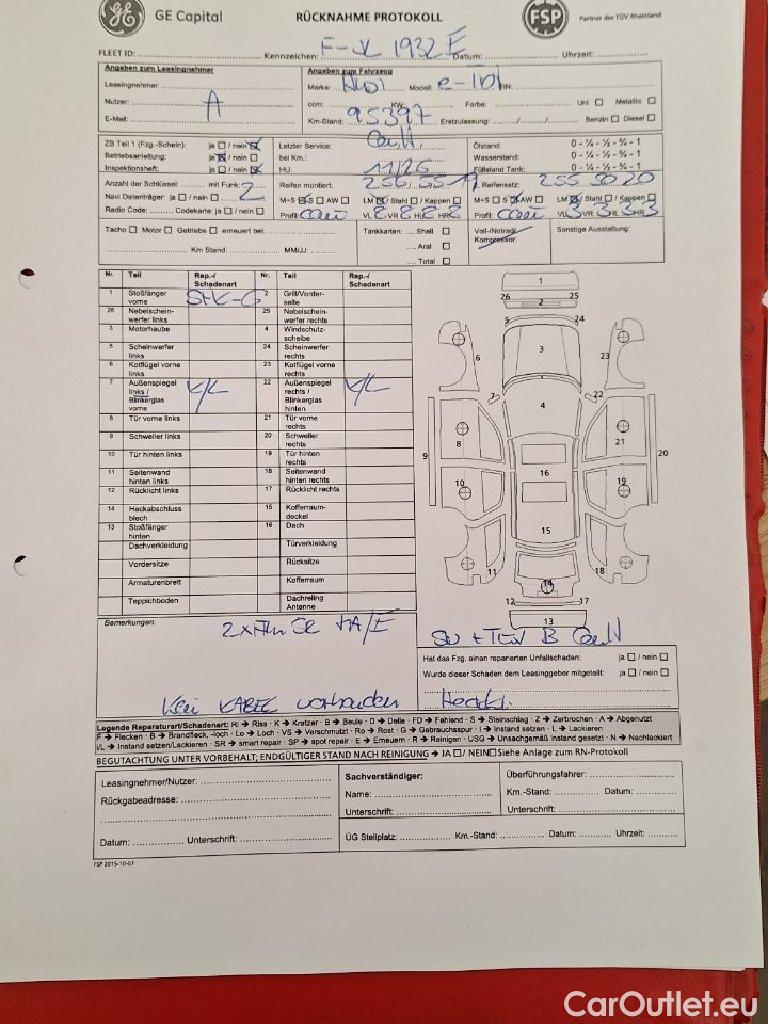 GE Capital RÜCKNAHME PROTOKOLL FSP Partner des TÜV Rheinland
FLEET ID: Kennzeichen: F- 1932 E Datum: Uhrzeit:
Angaben zum Leasingnehmer Angaben zum Fahrzeug
Leasingnehmer: Marke: Audi Modell: e-tron VIN:
Nutzer: A ccm: KW: Farbe: Uni ☐ Metallic ☐
E-Mail: Km-Stand: 95397 Erstzulassung: ....../....../...... Benzin ☐ Diesel ☐
ZB Teil 1 (Fzg.-Schein): ja ☐ / nein ☒ Letzter Service: Ölstand: 0 - ¼ - ½ - ¾ - 1
Betriebsanleitung: ja ☒ / nein ☐ bei Km.: Wasserstand: 0 - ¼ - ½ - ¾ - 1
Inspektionsheft: ja ☐ / nein ☒ HU: 11/26 Füllstand Tank: 0 - ¼ - ½ - ¾ - 1
Anzahl der Schlüssel: mit Funk: 2 Reifen montiert: 255 55 19 Reifensatz: 255 50 20
Navi Datenträger: ja ☐ / nein ☐ M+S ☒ S ☐ AW ☐ LM ☒ / Stahl ☐ / Kappen ☐ M+S ☐ S ☒ AW ☐ LM ☒ / Stahl ☐ / Kappen ☐
Radio Code: Codekarte: ja ☐ / nein ☐ Profil: VL 8 VR 8 HL 8 HR 8 Profil: VL 3 VR 3 HL 3 HR 3
Tacho ☐ Motor ☐ Getriebe ☐ erneuert bei: Tankkarten: Shell ☐ Voll-/Notrad/ Sonstige Ausstattung:
Aral ☐ Kompressor:
Km Stand: MM/JJ: Total ☐
Nr. Teil Rep.-/ Schadenart Nr. Teil Rep.-/ Schadenart
1 Stoßfänger vorne 2 Grill/Vorderseite
26 Nebelscheinwerfer links 25 Nebelscheinwerfer rechts
3 Motorhaube 4 Windschutzscheibe
5 Scheinwerfer links 24 Scheinwerfer rechts
6 Kotflügel vorne links 23 Kotflügel vorne rechts
7 Außenspiegel links / Blinkerglas vorne K/L 22 Außenspiegel rechts / Blinkerglas hinten K/L
8 Tür vorne links 21 Tür vorne rechts
9 Schweller links 20 Schweller rechts
10 Tür hinten links 19 Tür hinten rechts
11 Seitenwand hinten links 18 Seitenwand hinten rechts
12 Rücklicht links 17 Rücklicht rechts
14 Heckabschluss blech 15 Kofferraumdeckel
13 Stoßfänger hinten 16 Dach
Dachverkleidung Türverkleidung
Vordersitze Rücksitze
Armaturenbrett Kofferraum
Teppichboden Dachreling Antenne
1
26 25
2
5 24
6 3 23
7 22
4
8 21
9 20
16
10 19
15
11 18
14
12 17
13
Bemerkungen:
Hat das Fzg. einen reparierten Unfallschaden: ja ☐ / nein ☐
Wurde dieser Schaden dem Leasinggeber mitgeteilt: ja ☐ / nein ☐
Kein KABEL vorhanden
Legende Reparaturart/Schadenart: Ri → Riss · K → Kratzer · B → Beule · D → Delle · FD → Fehlend · S → Steinschlag · Z → Zerbrochen · A → Abgenutzt
F → Flecken · B → Brandfleck, -loch · Lo → Loch · VS → Verschmutzt · Ro → Rost · G → Gebrauchsspur · I → Instand setzen · L → Lackieren
I/L → Instand setzen/Lackieren · SR → smart repair · SP → spot repair · E → Erneuern · R → Reinigen · USG → Unsachgemäß instand gesetzt · N → Nachlackiert
BEGUTACHTUNG UNTER VORBEHALT; ENDGÜLTIGER STAND NACH REINIGUNG → JA ☐ / NEIN ☐ Siehe Anlage zum RN-Protokoll
Leasingnehmer/Nutzer: Sachverständiger: Überführungsfahrer:
Rückgabeadresse: Name: Km.-Stand: Datum:
Unterschrift: Unterschrift:
Datum: Unterschrift: ÜG Stellplatz: Km.-Stand: Datum: Uhrzeit:
FSP 2015-10-07
CarOutlet.eu